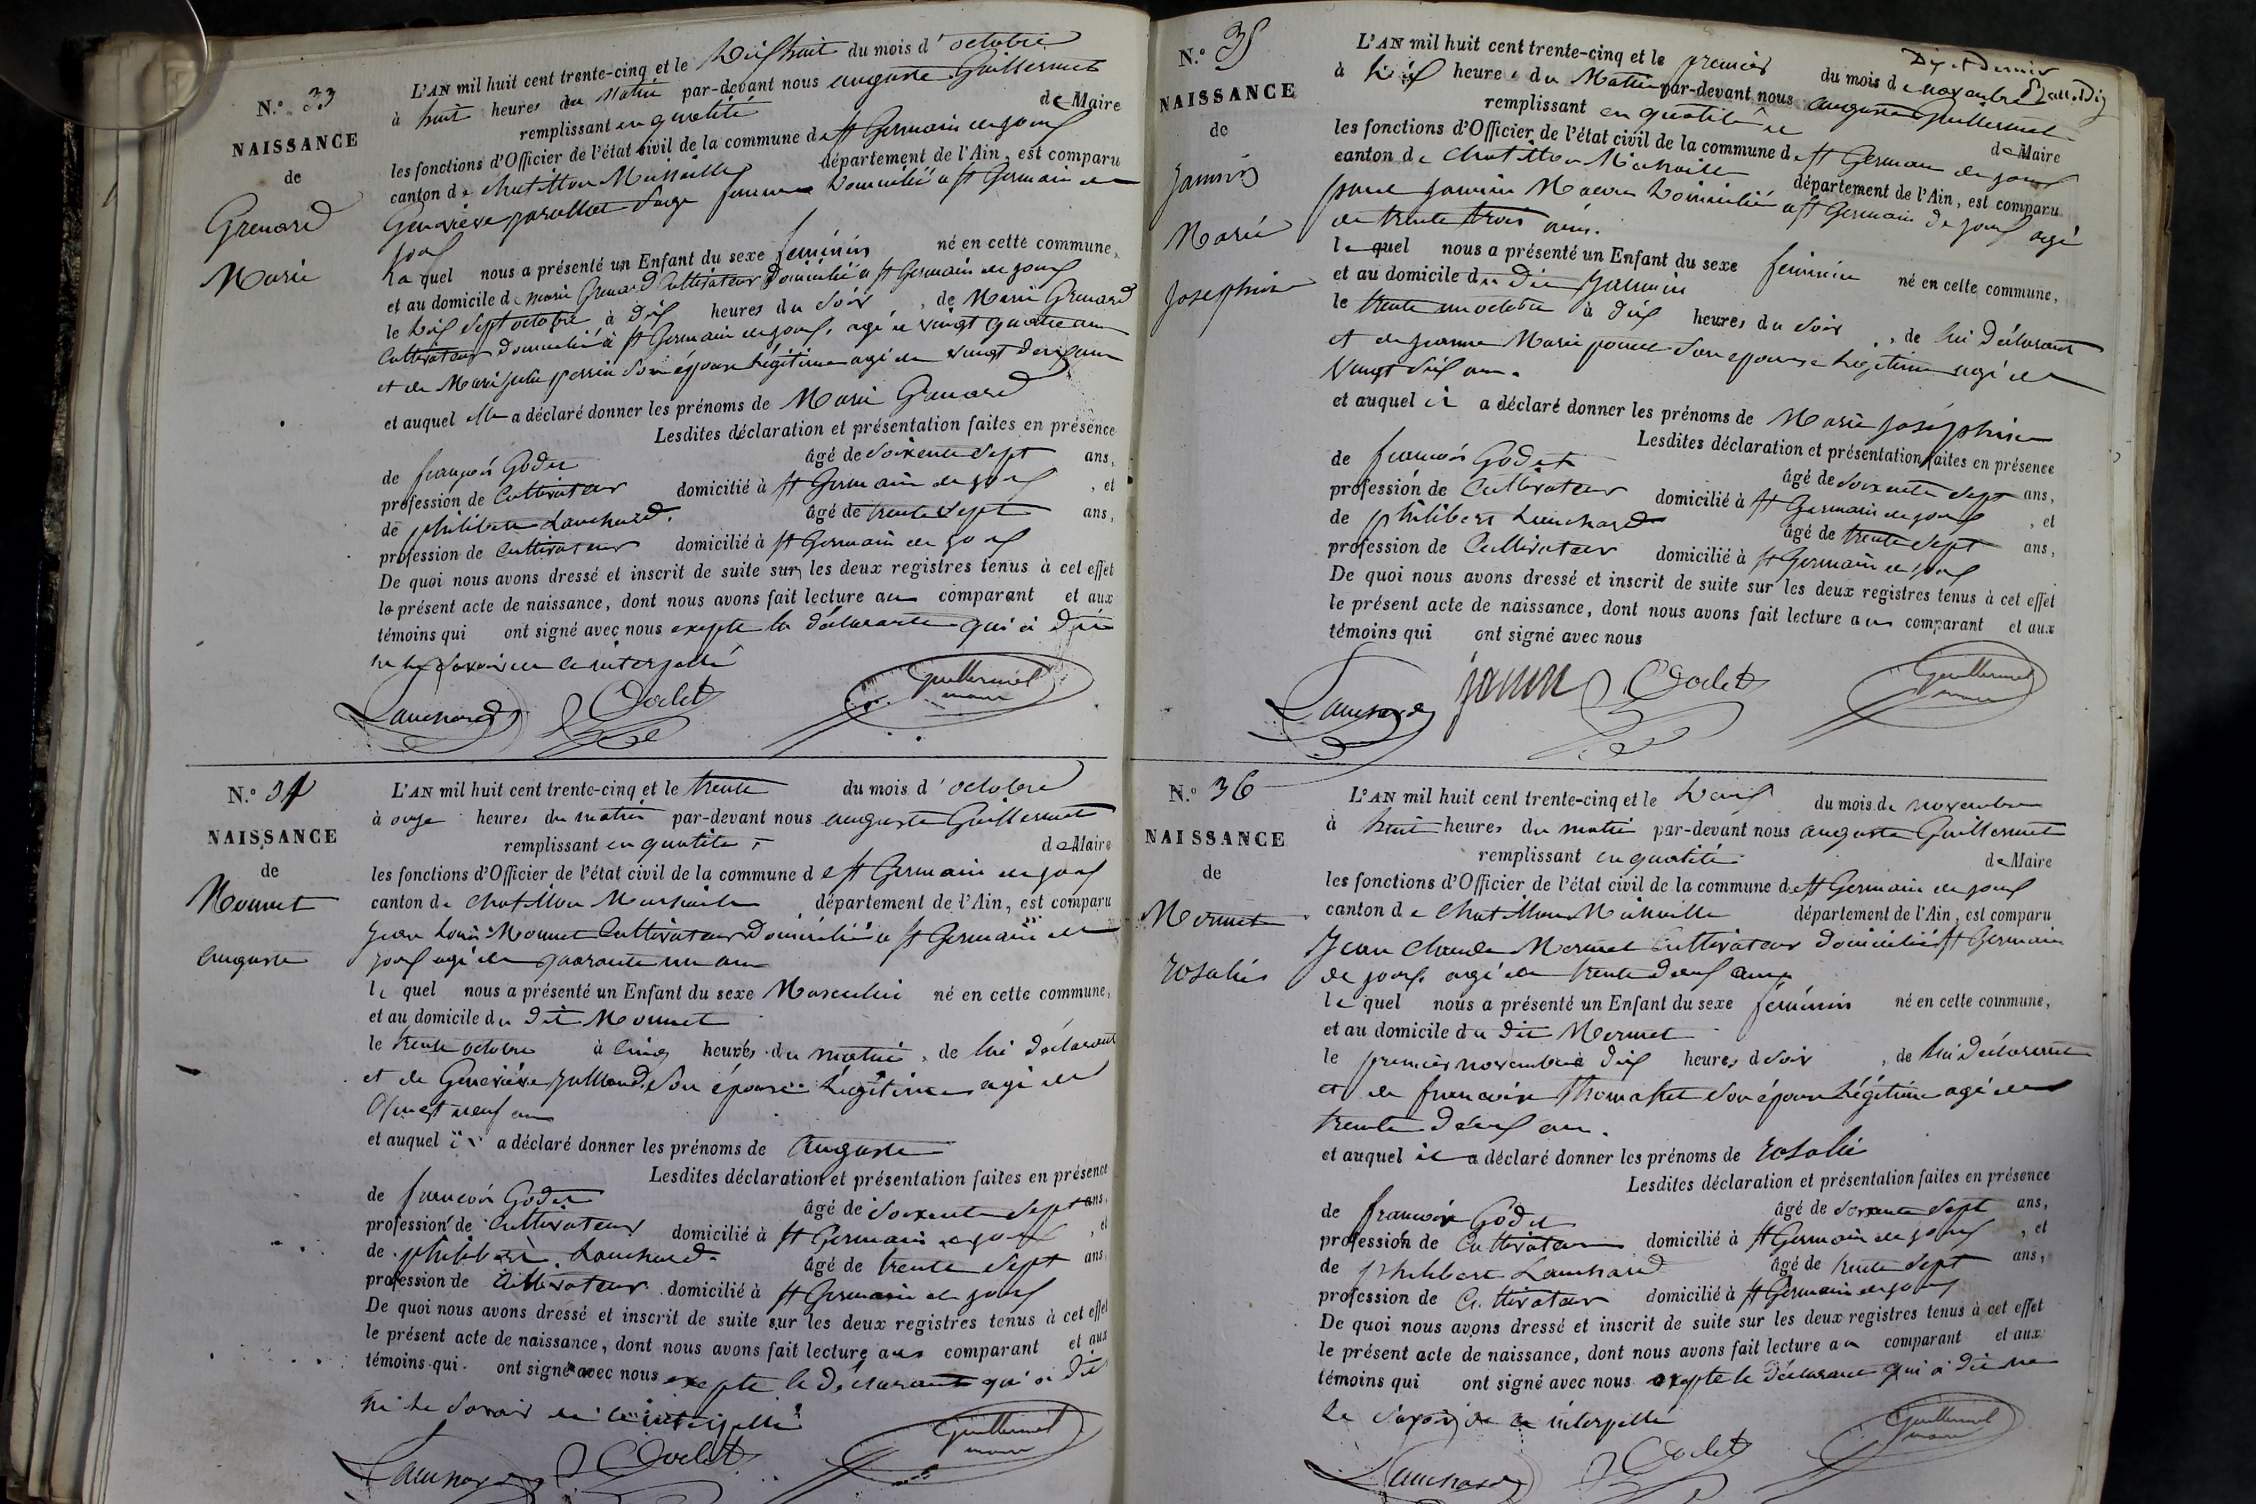 N.° 33
NAISSANCE
de
Grenard
Marie
L'AN mil huit cent trente-cinq et le dix huit du mois d'octobre
à huit heures du matin par-devant nous auguste Guillermet
remplissant en qualité de Maire
les fonctions d'Officier de l'état civil de la commune de St Germain de joux
canton de chatillon Michaille département de l'Ain, est comparu
Geneviève sage femme domicilié a St Germain de
joux
la quel nous a présenté un Enfant du sexe feminin né en cette commune,
et au domicile de marie Grenard Cultivateur domicilié a St Germain de joux
le dix sept octobre à dix heures du soir, de Marie Grenard
Cultivateur domicilié à St Germain de joux, agé de vingt quatre ans
et de Marie julie perrin son épouse légitime agé de vingt deux ans
et auquel elle a déclaré donner les prénoms de Marie Grenard
Lesdites déclaration et présentation faites en présence
de françois Godet âgé de soixente sept ans,
profession de Cultivateur domicilié à St Germain de joux, et
de philibert Lanchard. âgé de trente sept ans,
profession de Cultivateur domicilié à St Germain de joux
De quoi nous avons dressé et inscrit de suite sur les deux registres tenus à cet effet
le présent acte de naissance, dont nous avons fait lecture aux comparant et aux
témoins qui ont signé avec nous exepte la déclarante qui a dit
ne le savoir de ce interpellé
Lanchard Godet Guillermet
maire
N.° 34
NAISSANCE
de
Mounet
auguste
L'AN mil huit cent trente-cinq et le trente du mois d'octobre
à onze heures du matin par-devant nous auguste Guillermet
remplissant en qualité de Maire
les fonctions d'Officier de l'état civil de la commune de St Germain de joux
canton de chatillon Michaille département de l'Ain, est comparu
jean Louis Mounet Cultivateur domicilié a St Germain de
joux agé de quarante un ans
le quel nous a présenté un Enfant du sexe Masculin né en cette commune,
et au domicile du dit Mounet
le trente octobre à cinq heures du matin, de lui déclarant
et de Geneviève son épouse légitime agé de
vingt neuf ans
et auquel il a déclaré donner les prénoms de auguste
Lesdites déclaration et présentation faites en présence
de françois Godet âgé de soixente sept ans,
profession de Cultivateur domicilié à St Germain de joux, et
de philibert Lanchard âgé de trente sept ans,
profession de Cultivateur domicilié à St Germain de joux
De quoi nous avons dressé et inscrit de suite sur les deux registres tenus à cet effet
le présent acte de naissance, dont nous avons fait lecture aux comparant et aux
témoins qui ont signé avec nous exepte le déclarant qui a dit
ne le savoir de ce interpellé
Lanchard Godet Guillermet
maire
N.° 35
NAISSANCE
de
jannin
Marie
Josephine
L'AN mil huit cent trente-cinq et le premier du mois de novembre
à dix heures du Matin par-devant nous auguste Guillermet
remplissant en qualité de de Maire
les fonctions d'Officier de l'état civil de la commune de St Germain de joux
canton de chatillon Michaille département de l'Ain, est comparu
jannin Maçon domicilié a St Germain de joux agé
de trente trois ans.
le quel nous a présenté un Enfant du sexe feminin né en cette commune,
et au domicile du dit jannin
le trente un octobre à dix heures du soir, de lui déclarant
et de jeanne Marie poncet son epouse légitime agé de
vingt dix ans.
et auquel il a déclaré donner les prénoms de Marie joséphine
Lesdites déclaration et présentation faites en présence
de françois Godet âgé de soixente sept ans,
profession de Cultivateur domicilié à St Germain de joux, et
de philibert Lanchard âgé de trente sept ans,
profession de Cultivateur domicilié à St Germain de joux
De quoi nous avons dressé et inscrit de suite sur les deux registres tenus à cet effet
le présent acte de naissance, dont nous avons fait lecture aux comparant et aux
témoins qui ont signé avec nous
Lanchard janin Godet Guillermet
maire
N.° 36
NAISSANCE
de
Mermet
rosalie
L'AN mil huit cent trente-cinq et le deux du mois de novembre
à huit heures du matin par-devant nous auguste Guillermet
remplissant en qualité de Maire
les fonctions d'Officier de l'état civil de la commune de St Germain de joux
canton de chatillon Michaille département de l'Ain, est comparu
Jean claude Mermet Cultivateur domicilié St Germain
de joux agé de trente deux ans
le quel nous a présenté un Enfant du sexe féminin né en cette commune,
et au domicile du dit Mermet
le premier novembre à dix heures d soir, de lui déclarant
et de françoise thomasset son épouse légitime agé de
trente deux ans.
et auquel il a déclaré donner les prénoms de rosalie
Lesdites déclaration et présentation faites en présence
de françois Godet âgé de soixente sept ans,
profession de Cultivateur domicilié à St Germain de joux, et
de philibert Lanchard âgé de trente sept ans,
profession de Cultivateur domicilié à St Germain de joux
De quoi nous avons dressé et inscrit de suite sur les deux registres tenus à cet effet
le présent acte de naissance, dont nous avons fait lecture au comparant et aux
témoins qui ont signé avec nous exepte le déclarant qui a dit ne
le savoir de ce interpellé
Lanchard Godet Guillermet
maire